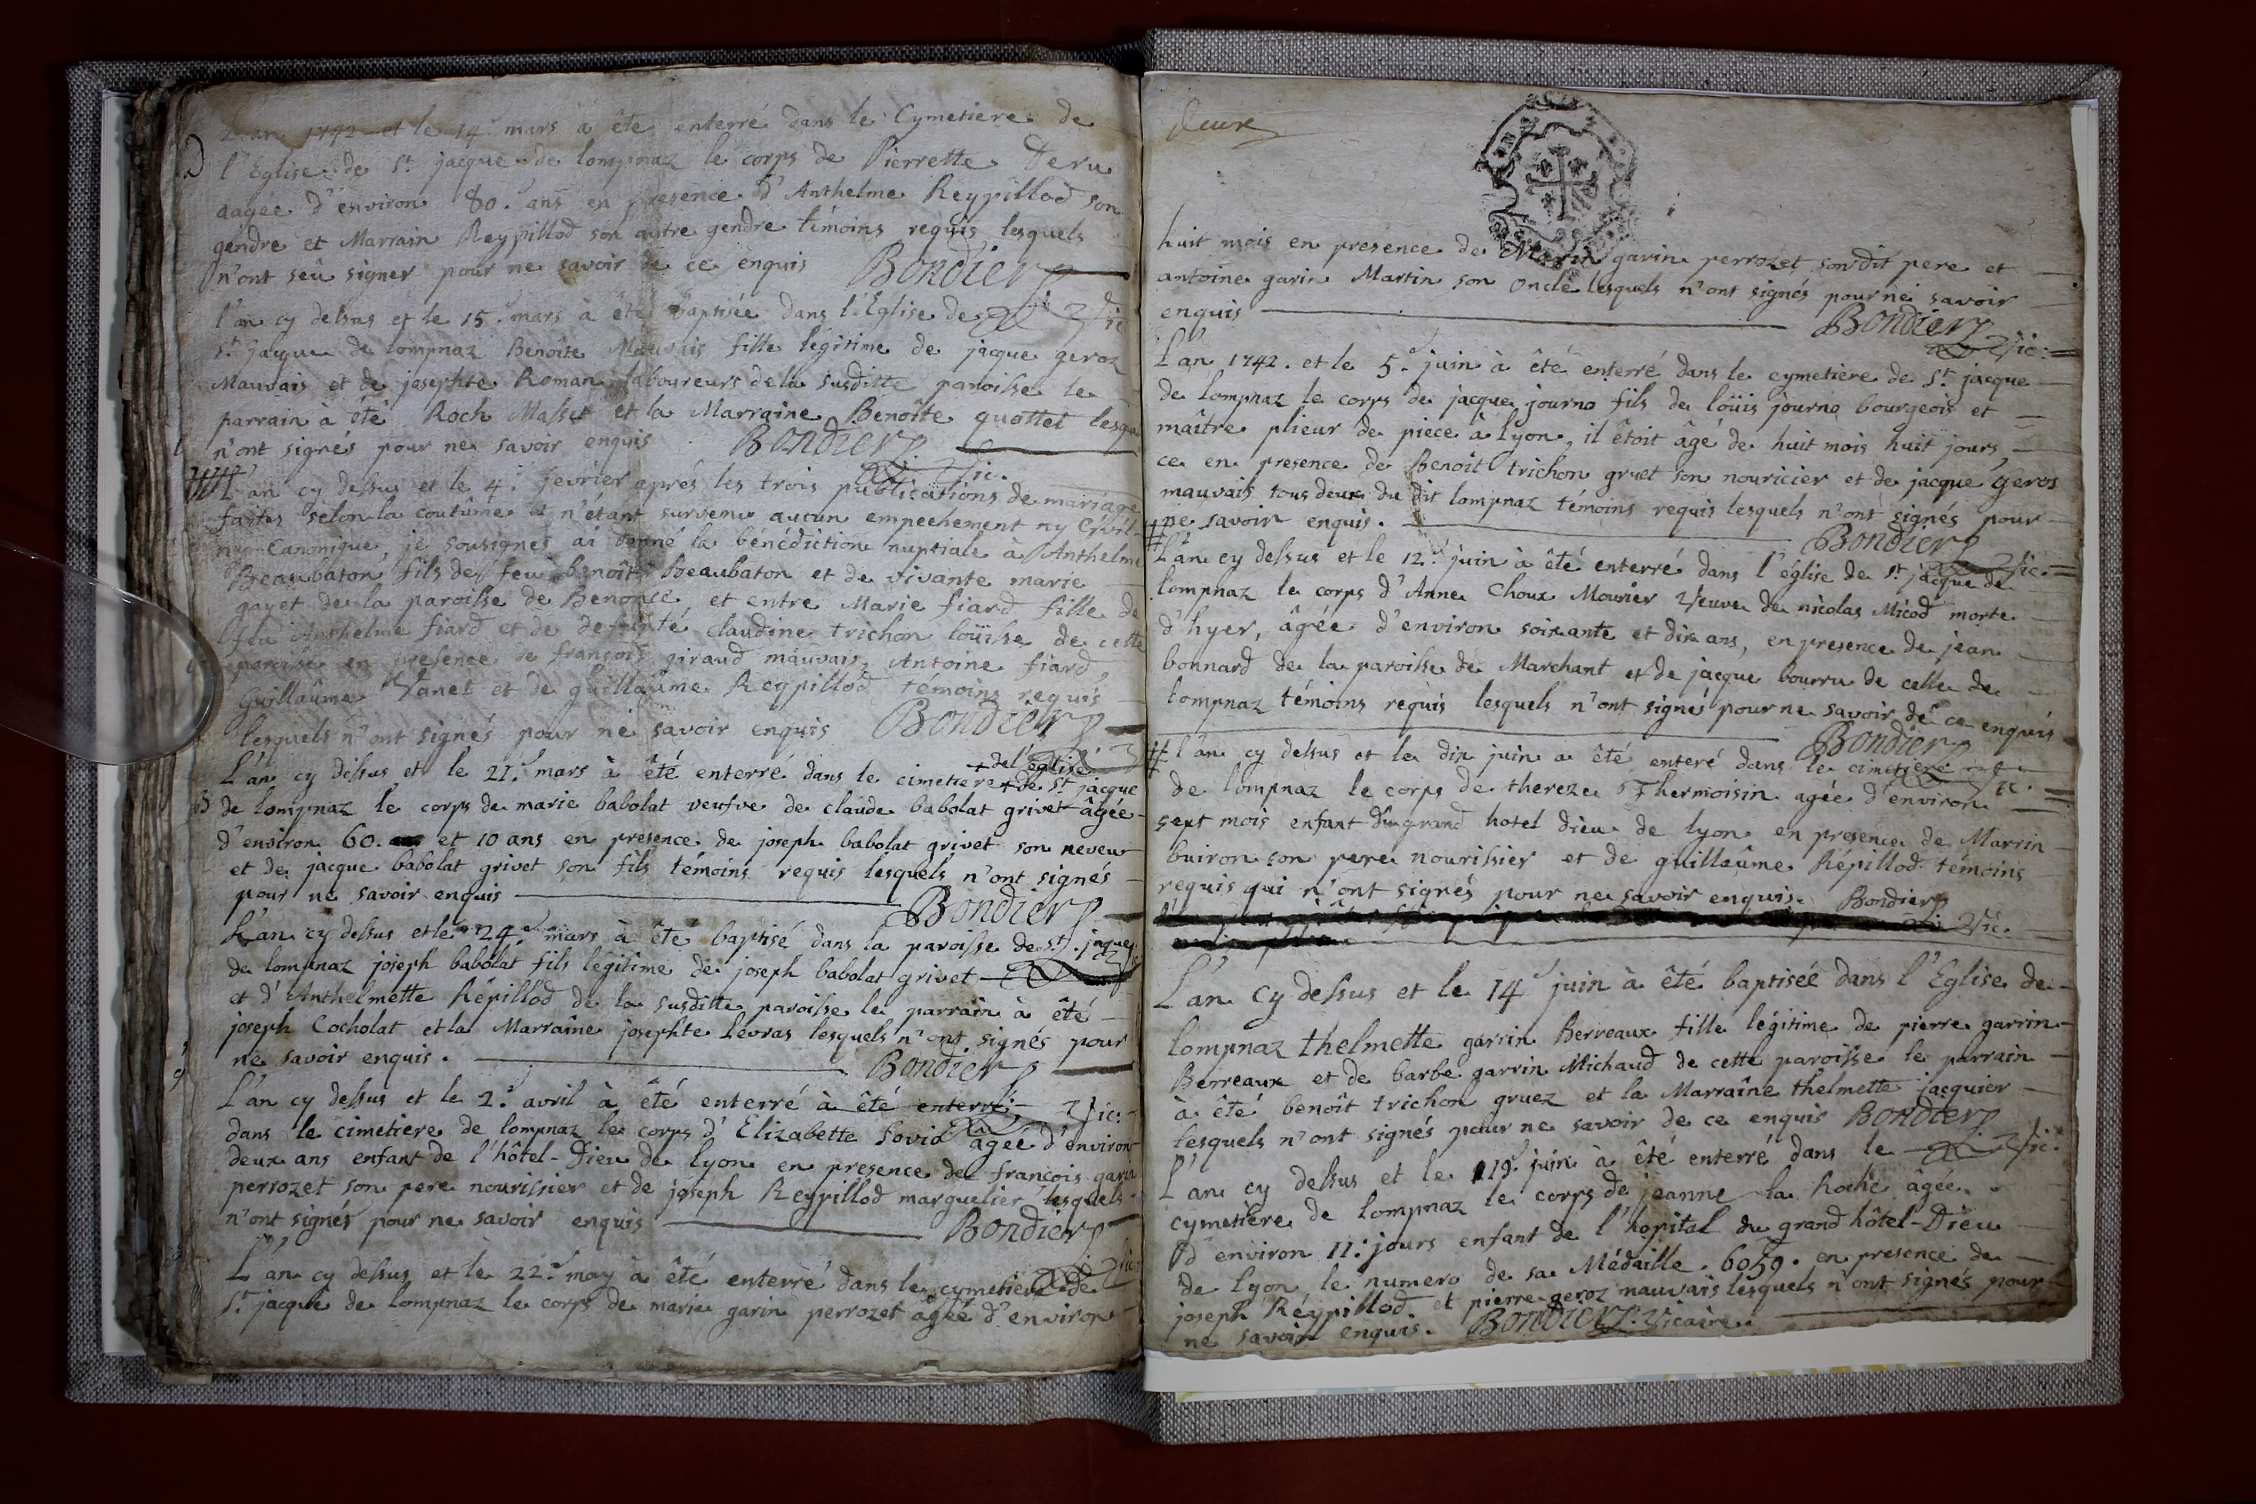 L'an 1742 et le 14e mars à été enterré dans le Cymetiere de
l'Eglise de St jacque de lompnaz le corps de Pierrette Deru
aagée d'environ 80. ans en presence d'Anthelme Reypillod son
gendre et Marrain Reypillod son autre gendre témoins requis lesquels
n'ont seû signer pour ne savoir de ce enquis Bondier
l'an cy dessus et le 15e mars à été baptisée dans l'Eglise de vic
St jacque de lompnaz Benoîte Mauvais fille légitime de jacque geroz
Mauvais et de josephte Roman laboureurs de la susditte paroisse le
parrain à été Roch Masset et la Marraine Benoîte quottet lesqu
n'ont signés pour ne savoir enquis Bondier
vic.
L'an cy dessus et le 4e fevrier aprés les trois publications de mariage
faites selon la coutûme et n'étant survenu aucun empechement ny Civil
ny Canonique, je sousignés ai donné la bénédiction nuptiale à Anthelme
Beaubaton fils de feu benoît beaubaton et de vivante marie
gayet de la paroisse de Benonce, et entre Marie fiard fille de
feu Anthelme fiard et de defunte claudine trichon loüisse de cette
paroisse en presence de françois giraud mauvais, Antoine fiard,
Guillaûme Janet et de guillaûme Reypillod témoins requis
lesquels n'ont signés pour ne savoir enquis Bondier
de l'église
L'an cy dessus et le 21e mars à été enterré dans le cimetiere + de St jacque
de lompnaz le corps de marie babolat veufve de claude babolat grivet âgée
d'environ 60. et 10 ans en presence de joseph babolat grivet son neveu
et de jacque babolat grivet son fils témoins requis lesquels n'ont signés
pour ne savoir enquis Bondier
L'an cy dessus et le 24e mars à été baptisé dans la paroisse de St. jacque
de lompnaz joseph babolat fils légitime de joseph babolat grivet
et d'Anthelmette Répillod de la susditte paroisse le parrain à été
joseph Cocholat et la Marraîne josephte Levras lesquels n'ont signés pour
ne savoir enquis. Bondier
L'an cy dessus et le 2e avril à été enterré à été enterré vic.
dans le cimetiere de lompnaz le corps d'Elizabette agée d'environ
deux ans enfant de l'hôtel-Dieu de lyon en presence de françois garin
perrozet son pere nourissier et de joseph Reypillod marguelier lesquels
n'ont signés pour ne savoir enquis Bondier
L'an cy dessus et le 22e may à été enterré dans le cymetiere de
St jacque de lompnaz le corps de marie garin perrozet agée d'environ
deux
huit mois en presence de garin perrozet son dit pere et
antoine garin Martin son oncle lesquels n'ont signés pour ne savoir
enquis Bondier
vic.
L'an 1742. et le 5e juin à été enterré dans le cymetiere de St jacque
de lompnaz le corps de jacque journo fils de loüis journo bourgeois et
maître plieur de piece à lyon, il étoit âgé de huit mois huit jours,
ce en presence de Benoît trichon gruet son nouricier et de jacque geros
mauvais tous deux du dit lompnaz témoins requis lesquels n'ont signés pour
ne savoir enquis. Bondier
vic.
L'an cy dessus et le 12e juin à été enterré dans l'église de St jacque de
lompnaz le corps d'Anne Choux Mourier veuve de nicolas Micod morte
d'hyer, âgée d'environ soixante et dix ans, en presence de jean
bonnard de la paroisse de Marchant et de jacque bourru de celle de
lompnaz témoins requis lesquels n'ont signé pour ne savoir de ce enquis
Bondier
l'an cy dessus et le dix juin a été enteré dans le cimetiere
vic.
de lompnaz le corps de thereze Thermoisin agée d'environ
sept mois enfant du grand hotel dieu de lyon en presence de Marrin
buiron son pere nourissier et de guillaûme Répillod témoins
requis qui n'ont signés pour ne savoir enquis. Bondier
vic.
L'an cy dessus et le 14e juin à été baptisée dans l'Eglise de
lompnaz thelmette garrin Berreaux fille légitime de pierre garrin
Berreaux et de barbe garrin Michaud de cette paroisse le parrain
à été benoît trichon gruez et la Marraîne thelmette jacquier
lesquels n'ont signés pour ne savoir de ce enquis Bondier
vic.
L'an cy dessus et le 19e juin à été enterré dans le
cymetiere de lompnaz le corps de jeanne la Roche âgée
d'environ 11. jours enfant de l'hopital du grand hôtel-Dieu
de lyon le numero de sa Médaille. 6059. en presence de
joseph Réypillod et pierre geroz mauvais lesquels n'ont signés pour
ne savoir enquis. Bondier. Vicaire.